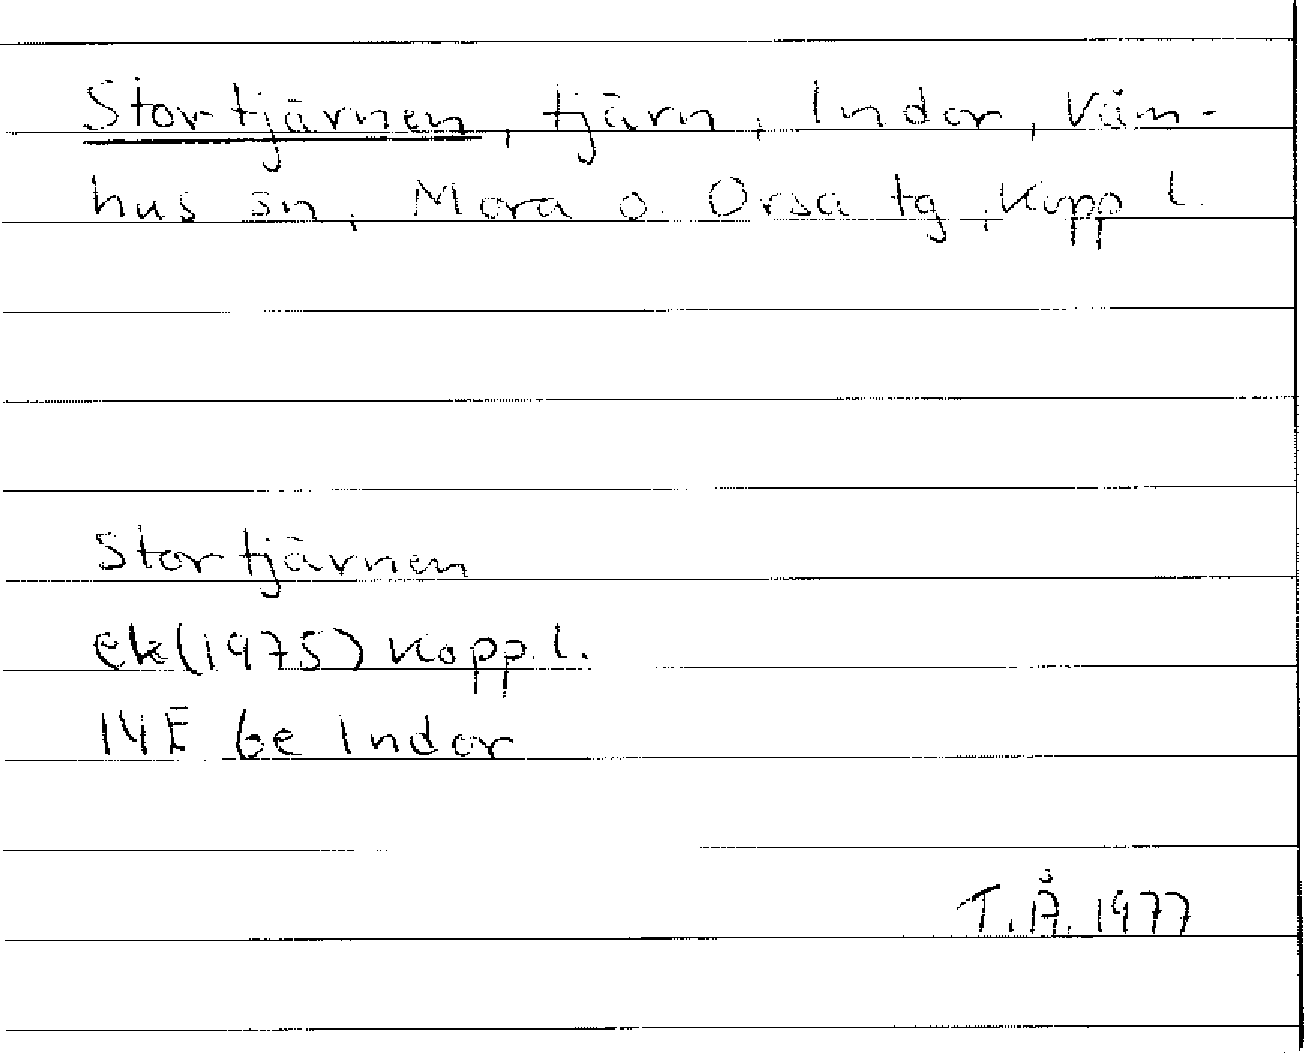 Stortjärnen, tjärn, Indor, Våm-
hus sn, Mora o. Orsa tg, Kopp l.
Stortjärnen
ek(1975) Kopp. l.
14E 6e Indor
T.Å. 1977